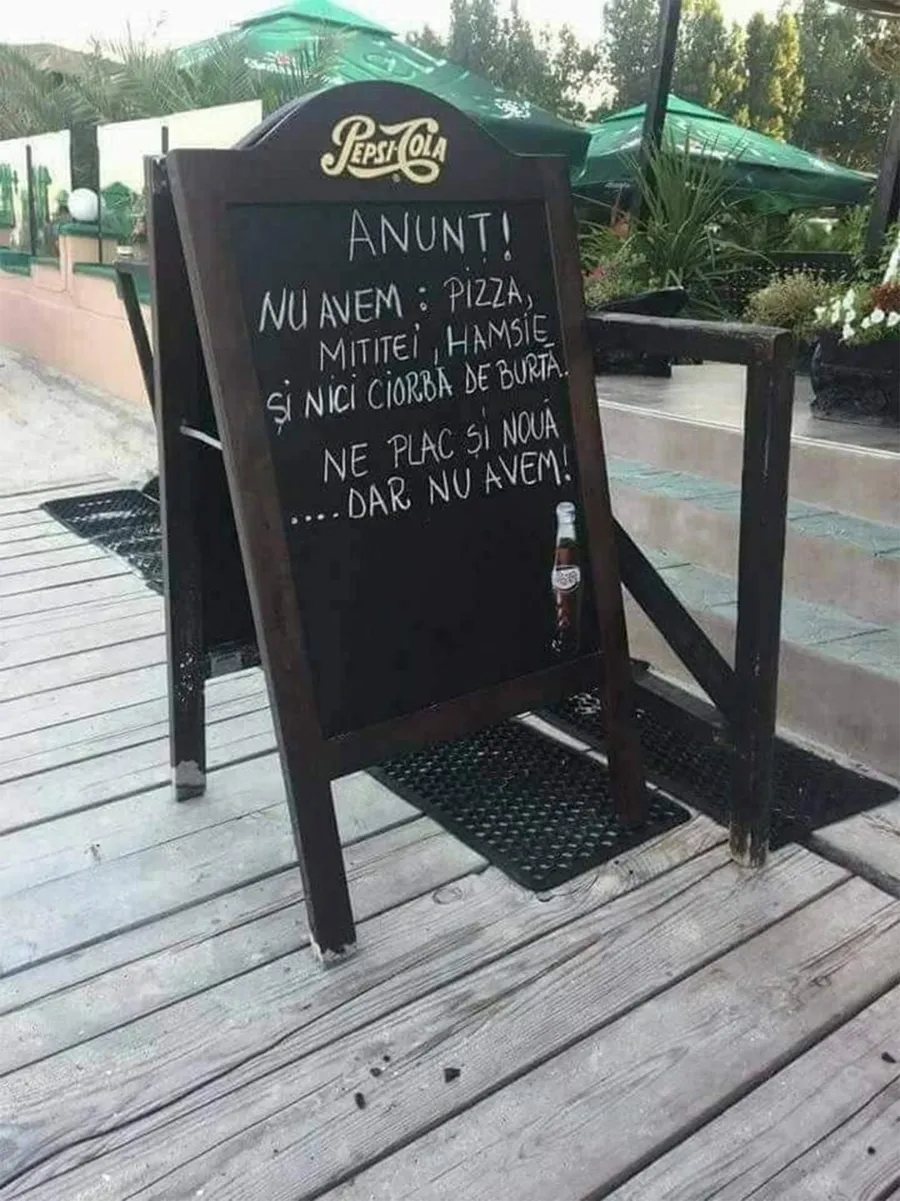 PEPSI-COLA
ANUNȚ!
NU AVEM : PIZZA,
MITITEI, HAMSIE
ȘI NICI CIORBĂ DE BURTĂ.
NE PLAC ȘI NOUĂ
....DAR NU AVEM!